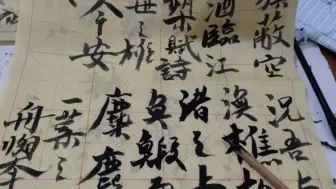 旗蔽空
酒臨江
槊賦詩
世之雄
今安
況吾
漁樵
渚之
魚蝦
麋鹿
一葉之
舟